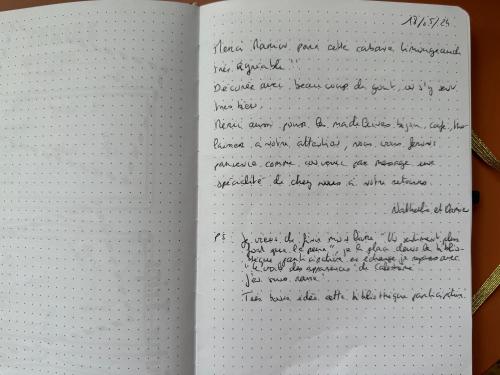 18/05/24
Merci pour cette cabane limougeaude
très agréable !!
Décorée avec beaucoup de goût, on s'y sent
très bien.
Merci aussi pour les madeleines, café, thé
à notre attention, nous vous ferons
parvenir comme convenu par message une
spécialité de chez nous à notre retour.
Nathalie et
PS : Je viens de finir mon livre "Un sentiment plus
fort que la peur", je le place dans la biblio-
thèque participative en échange je repars avec
"le des apparences de
j'ai
Très bonne idée cette bibliothèque participative.